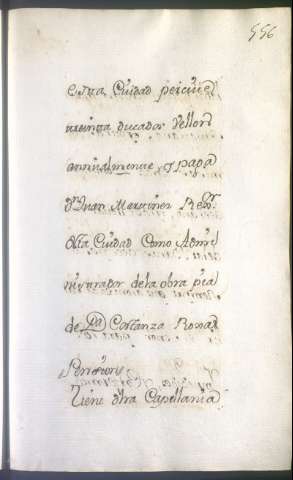 556
esta Ciudad percive
treinta ducados Vellon
annualmente q paga
Dn Juan Martinez Rexor
dsta Ciudad Como Admi
nistrador dela obra pia
de Da Costanza Rosas
Penssions
Tiene otra Capellania